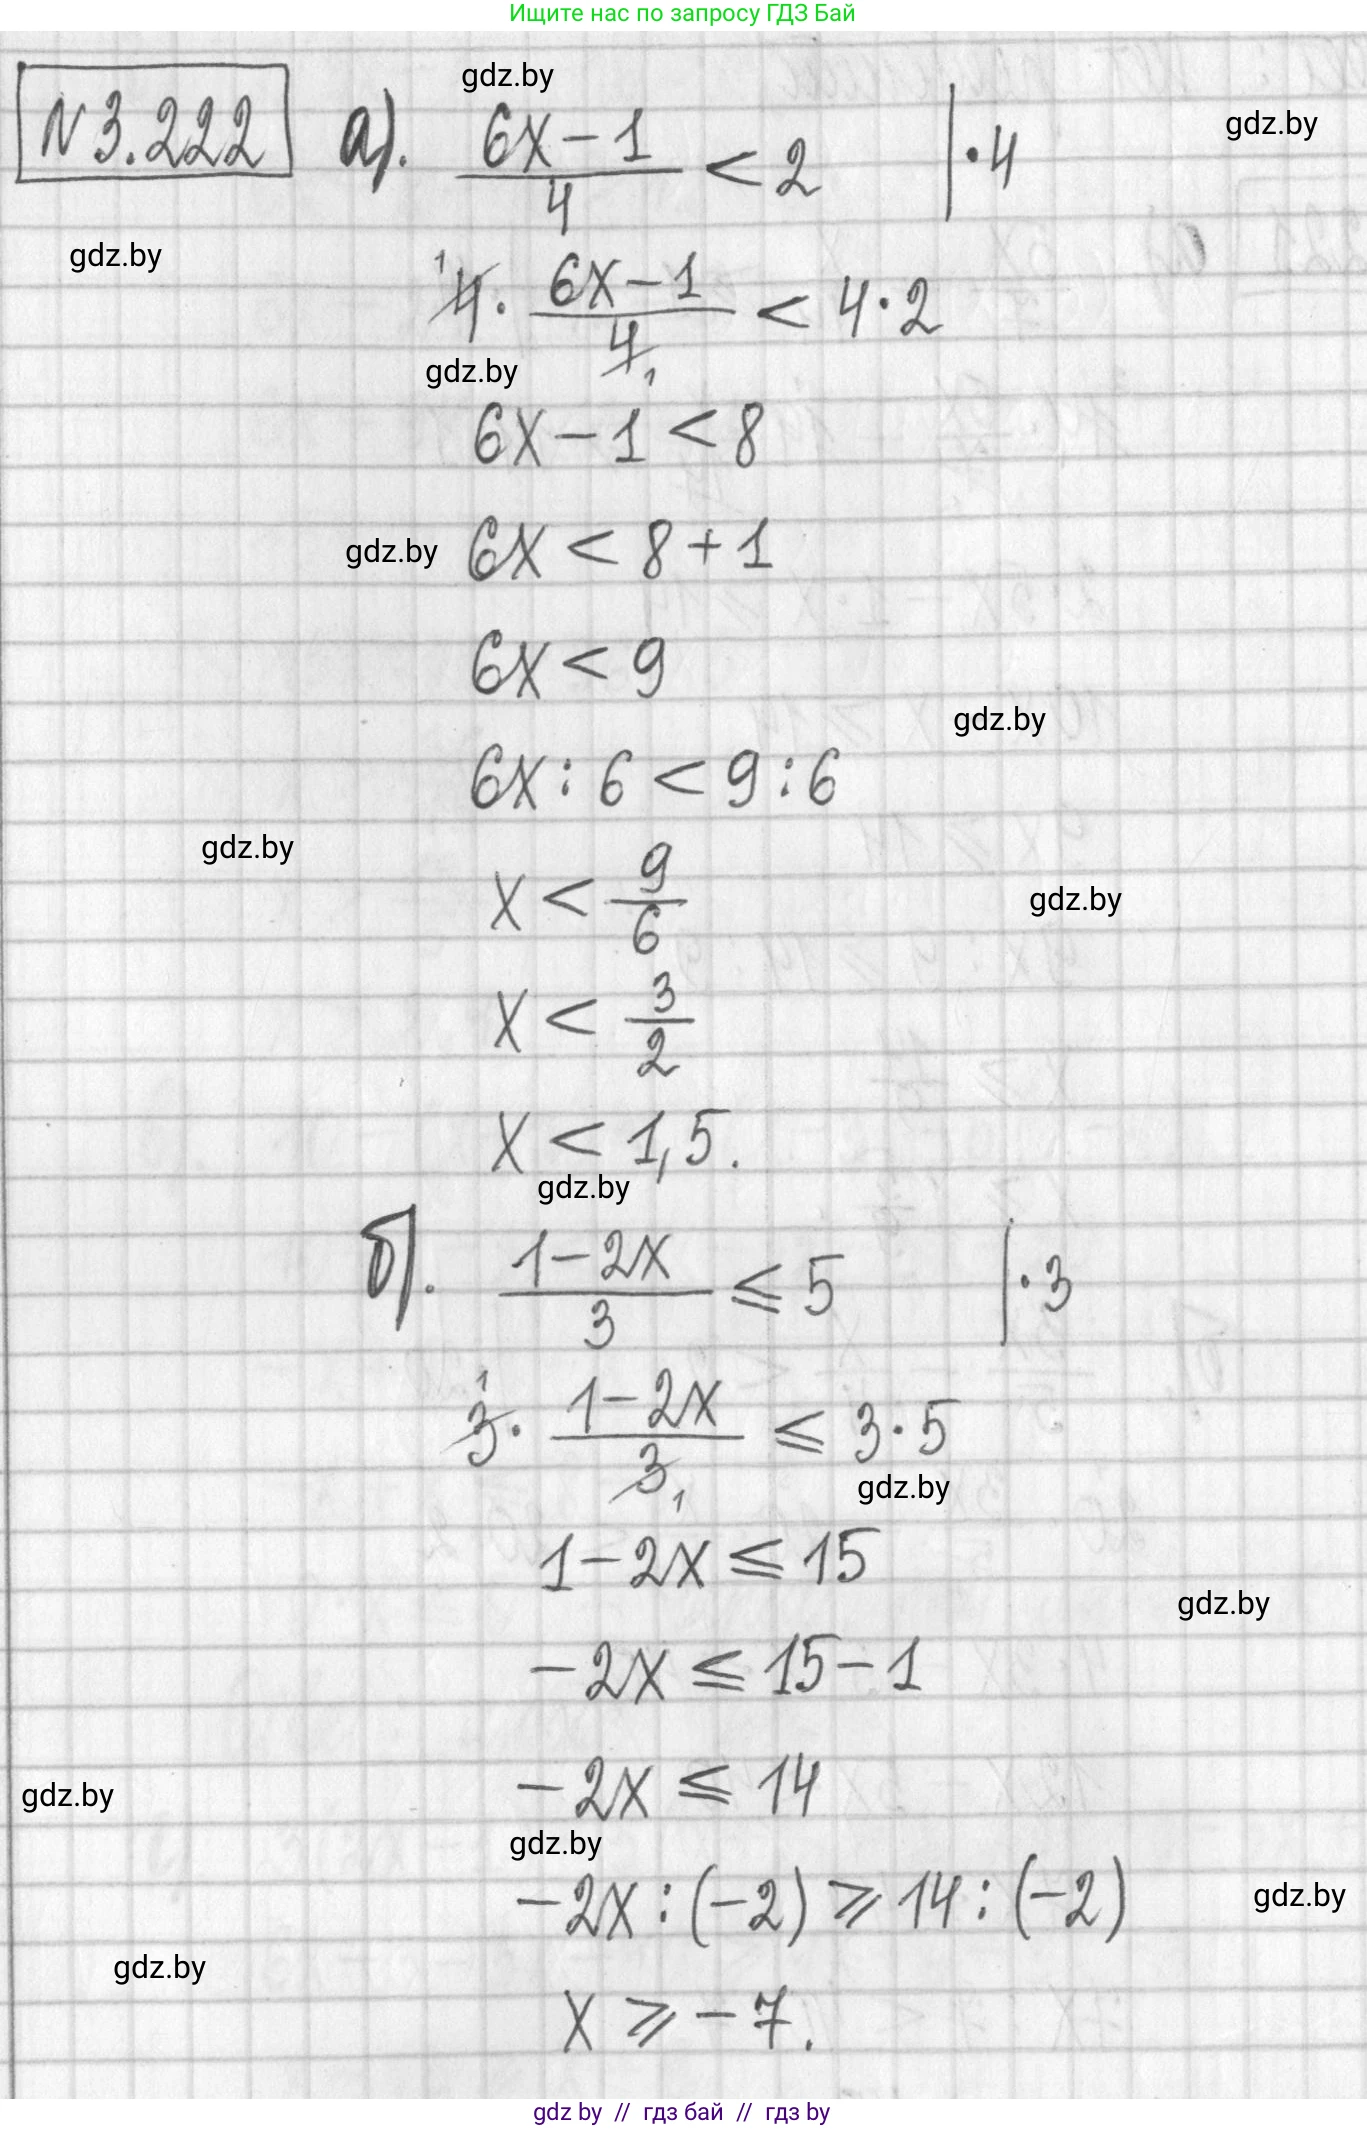 Ищите нас по запросу ГДЗ Бай
gdz.by
gdz.by
N 3.222 а). (6x-1)/4 < 2 | · 4
gdz.by
¹4 · (6x-1)/4₁ < 4·2
gdz.by
6x-1 < 8
gdz.by
6x < 8+1
6x < 9
gdz.by
6x : 6 < 9 : 6
gdz.by
x < 9/6
gdz.by
x < 3/2
x < 1,5.
gdz.by
б). (1-2x)/3 ⩽ 5 | · 3
¹3 · (1-2x)/3₁ ⩽ 3·5
gdz.by
1-2x ⩽ 15
gdz.by
-2x ⩽ 15-1
-2x ⩽ 14
gdz.by
gdz.by
-2x : (-2) ⩾ 14 : (-2)
gdz.by
gdz.by
x ⩾ -7.
gdz by // гдз бай // гдз by